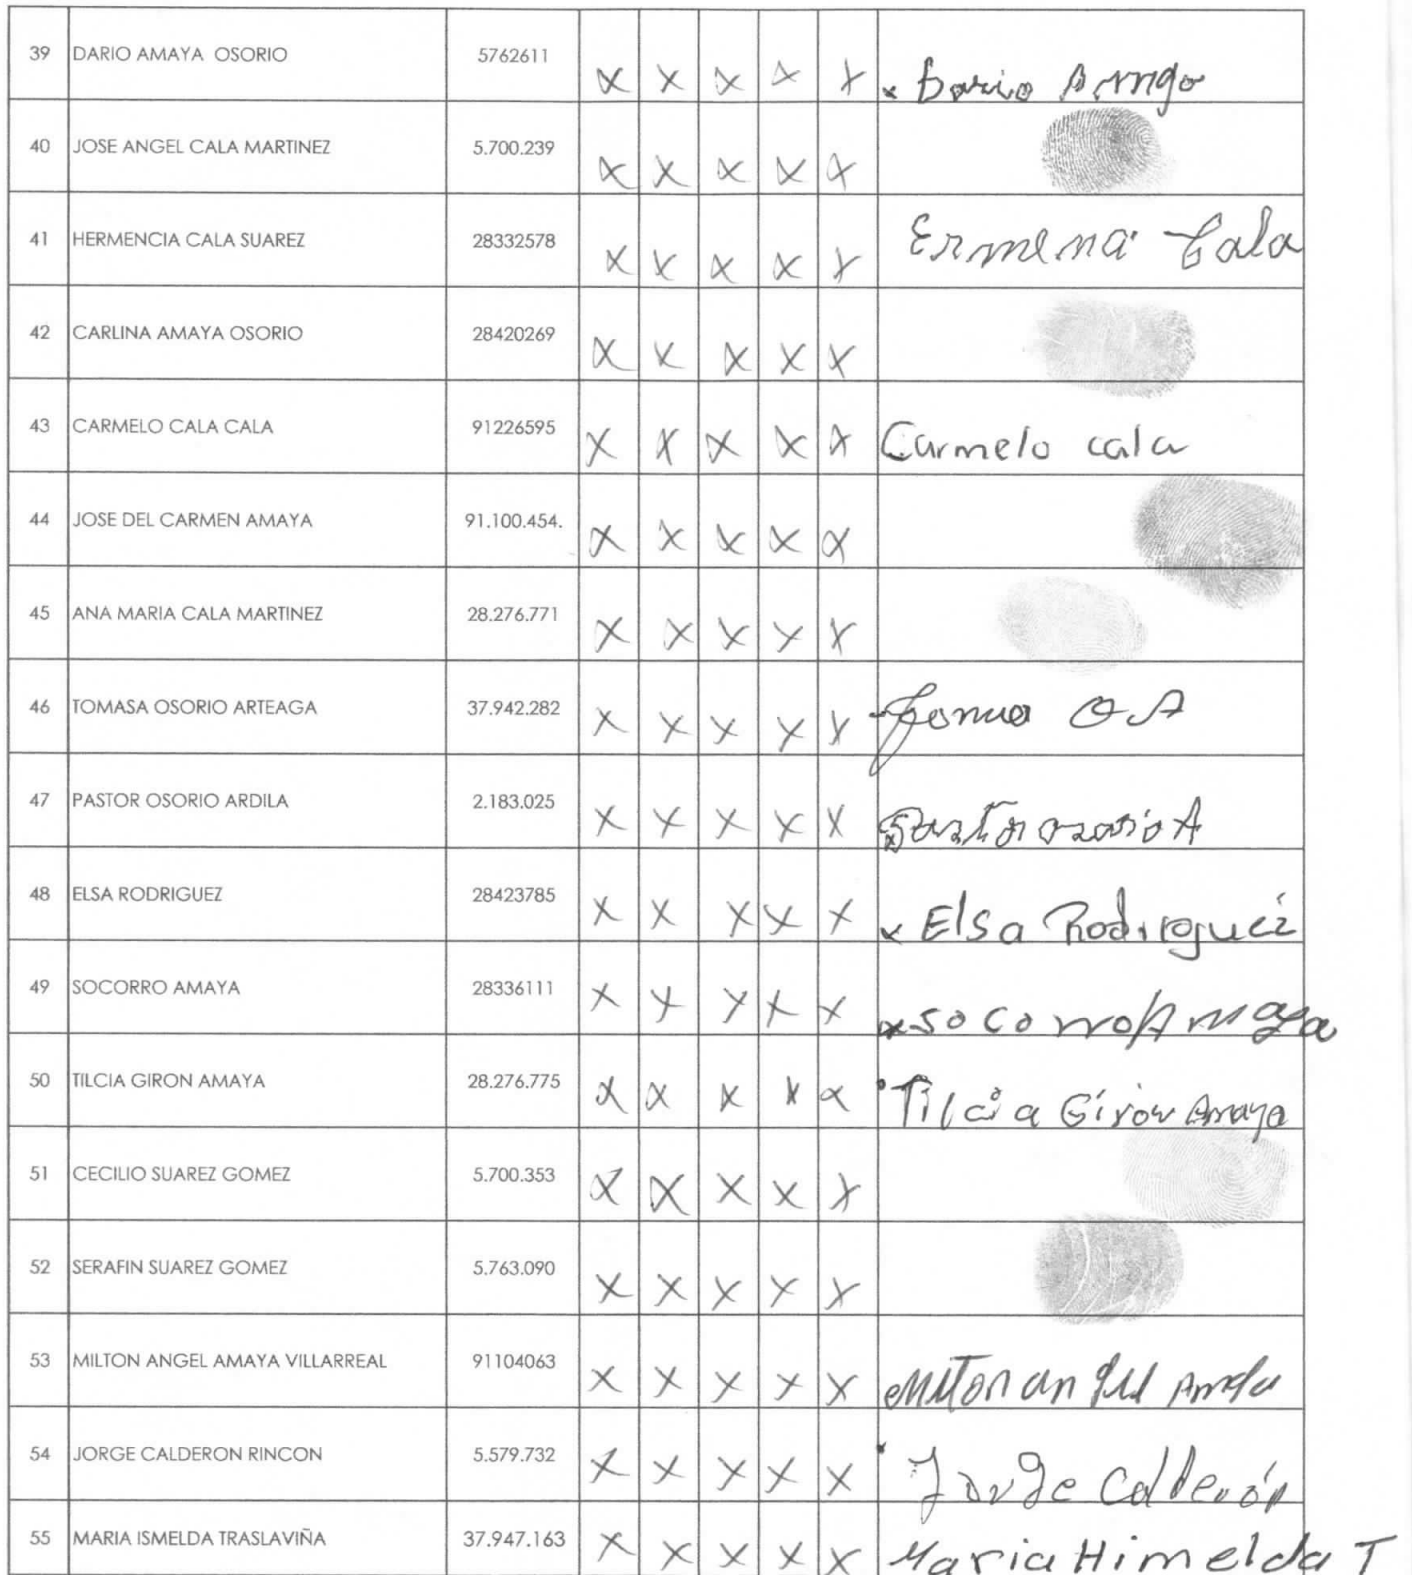 39 DARIO AMAYA OSORIO 5762611 X X X X X x Dario Amigo
40 JOSE ANGEL CALA MARTINEZ 5.700.239 X X X X X
41 HERMENCIA CALA SUAREZ 28332578 X X X X X Ermena Cala
42 CARLINA AMAYA OSORIO 28420269 X X X X X
43 CARMELO CALA CALA 91226595 X X X X X Carmelo cala
44 JOSE DEL CARMEN AMAYA 91.100.454. X X X X X
45 ANA MARIA CALA MARTINEZ 28.276.771 X X X X X
46 TOMASA OSORIO ARTEAGA 37.942.282 X X X X X O A
47 PASTOR OSORIO ARDILA 2.183.025 X X X X X A
48 ELSA RODRIGUEZ 28423785 X X X X X x Elsa Rodiroguez
49 SOCORRO AMAYA 28336111 X X X X X x socorro Amaya
50 TILCIA GIRON AMAYA 28.276.775 X X X X X Tilcia Girón Amaya
51 CECILIO SUAREZ GOMEZ 5.700.353 X X X X X
52 SERAFIN SUAREZ GOMEZ 5.763.090 X X X X X
53 MILTON ANGEL AMAYA VILLARREAL 91104063 X X X X X Milton
54 JORGE CALDERON RINCON 5.579.732 X X X X X Jorge Calderón
55 MARIA ISMELDA TRASLAVIÑA 37.947.163 X X X X X Maria Himelda T